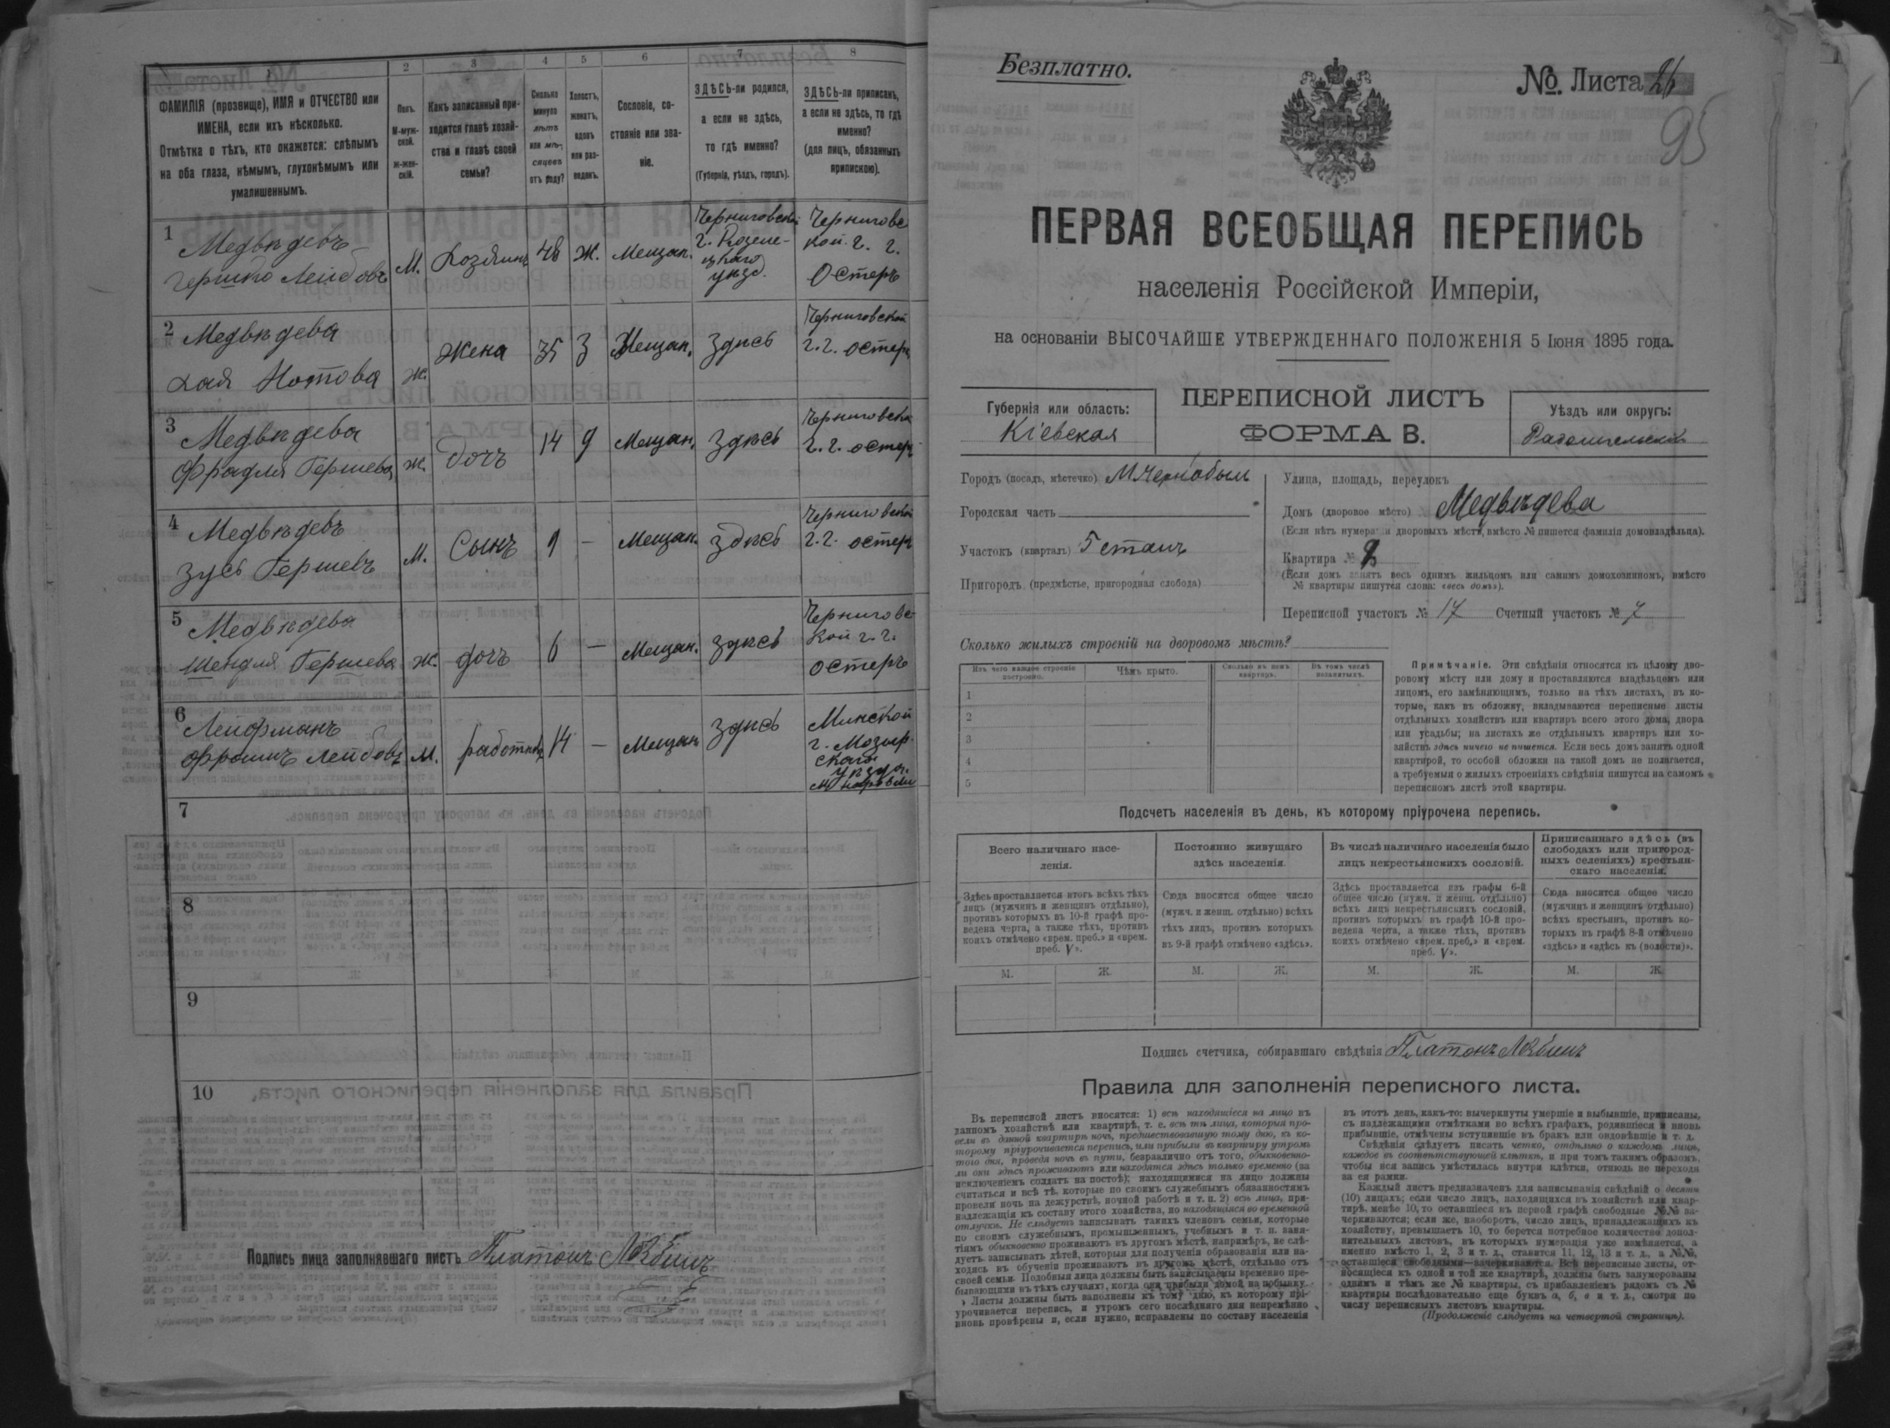 1
2
3
4
5
6
7
8
ФАМИЛІЯ (прозвище), ИМЯ и ОТЧЕСТВО или
ИМЕНА, если ихъ нѣсколько.
Отмѣтка о тѣхъ, кто окажется: слѣпымъ
на оба глаза, нѣмымъ, глухонѣмымъ или
умалишеннымъ.
Полъ.
М-муж-
ской.
ж-жен-
скій.
Какъ записанный при-
ходится главѣ хозяй-
ства и главѣ своей
семьи?
Сколько
минуло
лѣтъ
или мѣ-
сяцевъ
отъ роду?
Холостъ,
женатъ,
вдовъ
или раз-
веденъ.
Сословіе, со-
стояніе или зва-
ніе.
ЗДѢСЬ-ли родился,
а если не здѣсь,
то гдѣ именно?
(Губернія, уѣздъ, городъ).
ЗДѢСЬ-ли приписанъ,
а если не здѣсь, то гдѣ
именно?
(для лицъ, обязанныхъ
припискою).
1
Медвѣдевъ
Гершко Лейбовъ
М.
Хозяинъ
48
Ж.
Мещан.
Черниговской
г. Козеле-
цкаго
уѣзд.
Черниговс
кой г. г.
Остеръ
2
Медвѣдева
Хая Нотова
Ж.
Жена
35
З
Мещан.
Здѣсь
Черниговской
г. г. Остеръ
3
Медвѣдева
Фрадля Гершева
Ж.
дочъ
14
д
Мещан.
Здѣсь
Черниговской
г. г. Остеръ
4
Медвѣдевъ
Зусь Гершевъ
М.
Сынъ
9
—
Мещан.
Здѣсь
Черниговской
г. г. Остеръ
5
Медвѣдева
Шендля Гершева
Ж.
дочъ
6
—
Мещан.
Здѣсь
Черниговс
кой г. г.
Остеръ
6
Лейфманъ
Фроимъ Лейбовъ
М.
работникъ
14
—
Мещан
Здѣсь
Минской
г. Мозыр
скаго
уѣзда.
м. Наровли
7
8
9
10
Подпись лица заполнявшаго листъ Платонъ
Безплатно.
№. Листа 26
95
ПЕРВАЯ ВСЕОБЩАЯ ПЕРЕПИСЬ
населенія Россійской Имперіи,
на основаніи ВЫСОЧАЙШЕ УТВЕРЖДЕННАГО ПОЛОЖЕНІЯ 5 Іюня 1895 года.
Губернія или область:
Кіевская
ПЕРЕПИСНОЙ ЛИСТЪ
ФОРМА В.
Уѣздъ или округъ:
Радомысльскій
Городъ (посадъ, мѣстечко) М. Чернобыль
Городская часть
Участокъ (кварталъ) 5 станъ
Пригородъ (предмѣстье, пригородная слобода)
Улица, площадь, переулокъ
Домъ (дворовое мѣсто) Медвѣдева
(Если нѣтъ нумераціи дворовыхъ мѣстъ, вмѣсто № пишется фамилія домовладѣльца).
Квартира №
(Если домъ занятъ весь однимъ жильцомъ или самимъ домохозяиномъ, вмѣсто
№ квартиры пишутся слова: «весь домъ»).
Переписной участокъ № 17 Счетный участокъ № 7
Сколько жилыхъ строеній на дворовомъ мѣстѣ?
Изъ чего каждое строеніе
построено.
Чѣмъ крыто.
Сколько въ немъ
квартиръ.
Въ томъ числѣ
незанятыхъ.
1
2
3
4
5
Примѣчаніе. Эти свѣдѣнія относятся къ цѣлому дво-
ровому мѣсту или дому и проставляются владѣльцемъ или
лицомъ, его замѣняющимъ, только на тѣхъ листахъ, въ ко-
торые, какъ въ обложку, вкладываются переписные листы
отдѣльныхъ хозяйствъ или квартиръ всего этого дома, двора
или усадьбы; на листахъ же отдѣльныхъ квартиръ или хо-
зяйствъ здѣсь ничего не пишется. Если весь домъ занятъ одной
квартирой, то особой обложки на такой домъ не полагается,
а требуемыя о жилыхъ строеніяхъ свѣдѣнія пишутся на самомъ
переписномъ листѣ этой квартиры.
Подсчетъ населенія въ день, къ которому пріурочена перепись.
Всего наличнаго насе-
ленія.
Постоянно живущаго
здѣсь населенія.
Въ числѣ наличнаго населенія было
лицъ некрестьянскихъ сословій.
Приписаннаго здѣсь (въ
слободахъ или пригород-
ныхъ селеніяхъ) крестьян-
скаго населенія.
Здѣсь проставляется итогъ всѣхъ тѣхъ
лицъ (мужчинъ и женщинъ отдѣльно),
противъ которыхъ въ 10-й графѣ про-
ведена черта, а также тѣхъ, противъ
коихъ отмѣчено «врем. преб.» и «врем.
преб. V».
Сюда вносится общее число
(мужч. и женщ. отдѣльно) всѣхъ
тѣхъ лицъ, противъ которыхъ
въ 9-й графѣ отмѣчено «здѣсь».
Здѣсь проставляется изъ графы 6-й
общее число (мужч. и женщ. отдѣльно)
всѣхъ лицъ некрестьянскихъ сословій,
противъ которыхъ въ графѣ 10-й про-
ведена черта, а также тѣхъ, противъ
коихъ отмѣчено «врем. преб.» и «врем.
преб. V».
Сюда вносится общее число
(мужчинъ и женщинъ отдѣльно)
всѣхъ крестьянъ, противъ ко-
торыхъ въ графѣ 8-й отмѣчено
«здѣсь» и «здѣсь къ (волости)».
М. Ж. М. Ж. М. Ж. М. Ж.
Подпись счетчика, собиравшаго свѣдѣнія Платонъ
Правила для заполненія переписного листа.
Въ переписной листъ вносятся: 1) всѣ находящіеся на лицо въ
данномъ хозяйствѣ или квартирѣ, т. е. всѣ тѣ лица, которыя про-
вели въ данной квартирѣ ночь, предшествовавшую тому дню, къ ко-
торому пріурочивается перепись, или прибыли въ квартиру утромъ
того дня, проведя ночь въ пути, безразлично отъ того, обыкновенно-
ли они здѣсь проживаютъ или находятся здѣсь только временно (за
исключеніемъ солдатъ на постоѣ); находящимися на лицо должны
считаться и всѣ тѣ, которые по своимъ служебнымъ обязанностямъ
провели ночь на дежурствѣ, ночной работѣ и т. п. 2) всѣ лица, при-
надлежащія къ составу этого хозяйства, но находящіяся во временной
отлучкѣ. Не слѣдуетъ записывать такихъ членовъ семьи, которые
по своимъ служебнымъ, промышленнымъ, учебнымъ и т. п. заня-
тіямъ обыкновенно проживаютъ въ другомъ мѣстѣ, напримѣръ, не слѣ-
дуетъ записывать дѣтей, которыя для полученія образованія или на-
ходясь въ обученіи проживаютъ въ другомъ мѣстѣ, отдѣльно отъ
своей семьи. Подобныя лица должны быть записываемы временно пре-
бывающими въ тѣхъ случаяхъ, когда они прибыли домой на побывку.
Листы должны быть заполнены къ тому дню, къ которому прі-
урочивается перепись, и утромъ сего послѣдняго дня непремѣнно
вновь провѣрены и, если нужно, исправлены по составу населенія
въ этотъ день, какъ-то: вычеркнуты умершіе и выбывшіе, приписаны,
съ надлежащими отмѣтками во всѣхъ графахъ, родившіеся и вновь
прибывшіе, отмѣчены вступившіе въ бракъ или овдовѣвшіе и т. д.
Свѣдѣнія слѣдуетъ писать четко, отдѣльно о каждомъ лицѣ,
каждое въ соотвѣтствующей клѣткѣ, и при томъ такимъ образомъ,
чтобы вся запись умѣстилась внутри клѣтки, отнюдь не переходя
за ея рамки.
Каждый листъ предназначенъ для записыванія свѣдѣній о десяти
(10) лицахъ; если число лицъ, находящихся въ хозяйствѣ или квар-
тирѣ, менѣе 10, то оставшіеся въ первой графѣ свободные №№ за-
черкиваются; если же, наоборотъ, число лицъ, принадлежащихъ къ
хозяйству, превышаетъ 10, то берется потребное количество допол-
нительныхъ листовъ, въ которыхъ нумерація уже измѣняется, а
именно вмѣсто 1, 2, 3 и т. д., ставится 11, 12, 13 и т. д., а №№,
оставшіеся свободными—зачеркиваются. Всѣ переписные листы, от-
носящіеся къ одной и той же квартирѣ, должны быть занумерованы
однимъ и тѣмъ же № квартиры, съ прибавленіемъ рядомъ съ №
квартиры послѣдовательно еще буквъ а, б, в и т. д., смотря по
числу переписныхъ листовъ квартиры.
(Продолженіе слѣдуетъ на четвертой страницѣ).